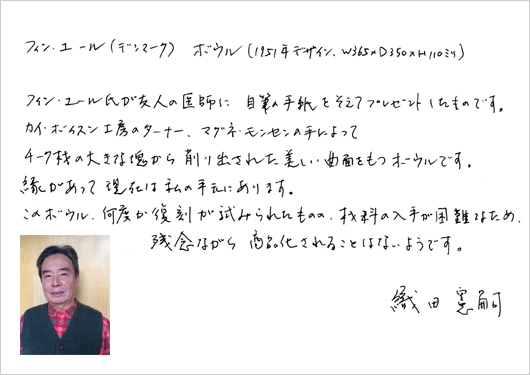 フィン・ユール(デンマーク) ボウル(1951年デザイン、W365×D350×H110ミリ)
フィン・ユール氏が友人の医師に 自筆の手紙をそえてプレゼントしたものです。
カイ・ボイスン工房のターナー、マグネ・モンセンの手によって
チーク材の大きな塊から削り出された美しい曲面をもつボウルです。
縁があって現在は私の手元にあります。
このボウル、何度か復刻が試みられたものの、材料の入手が困難なため、
残念ながら商品化されることはないようです。
織田憲嗣